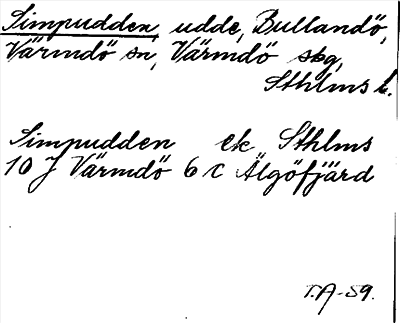 Simpudden, udde, Bullandö,
Värmdö sn, Värmdö skg,
Sthlms l.
Simpudden ek Sthlms
10 J Värmdö 6 c Älgöfjärd
T.A-59.